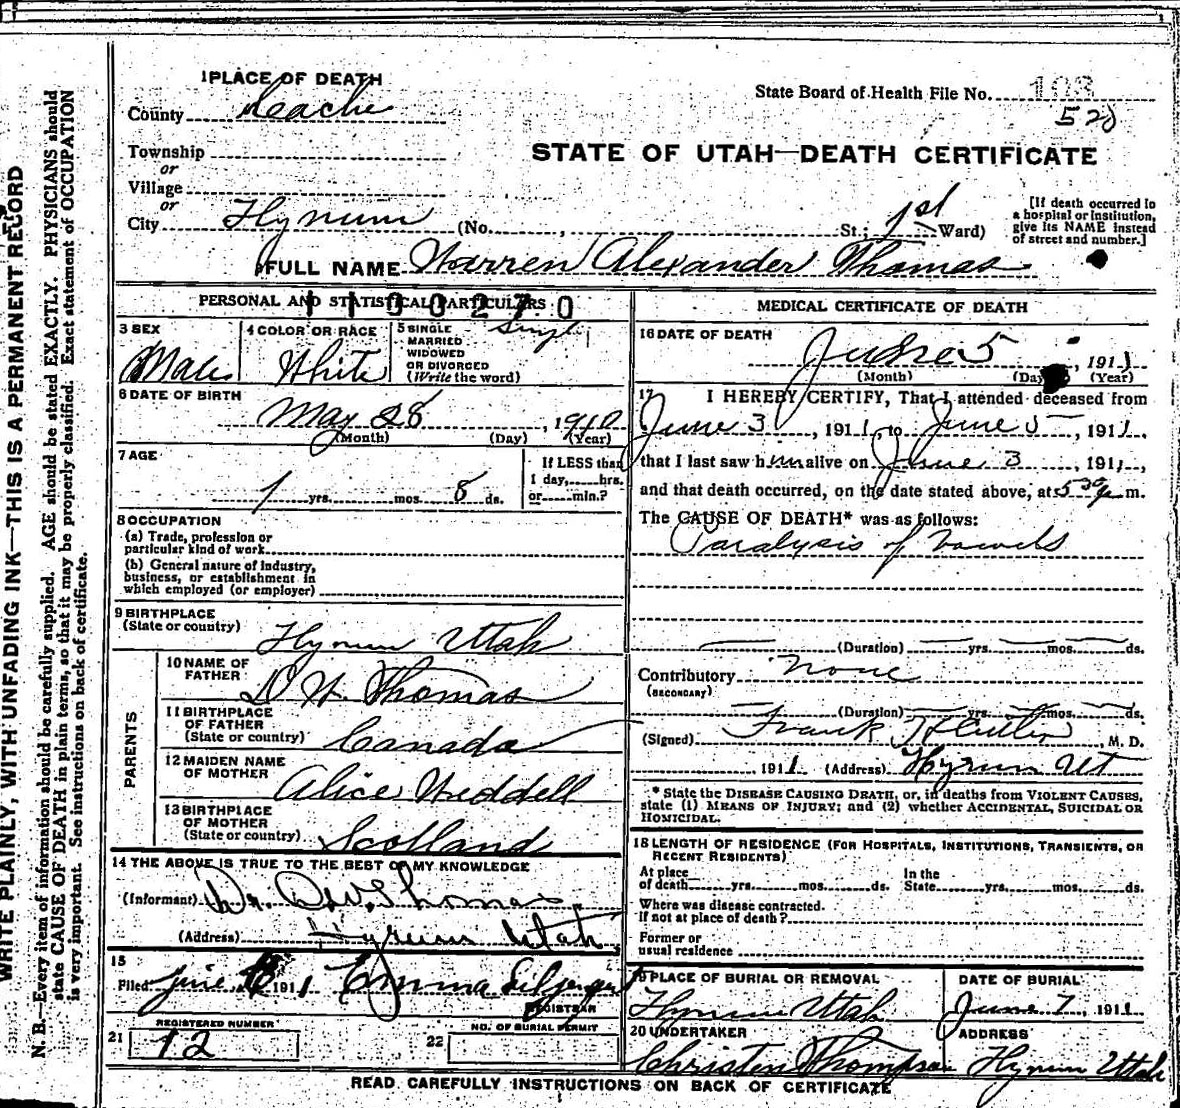 1 PLACE OF DEATH
County Cache
State Board of Health File No. 103
528
Township
or
Village
or
City Hyrum (No. , St.; 1st Ward)
STATE OF UTAH—DEATH CERTIFICATE
[If death occurred in a hospital or institution, give its NAME instead of street and number.]
FULL NAME Warren Alexander Thomas
PERSONAL AND STATISTICAL PARTICULARS
1100270
3 SEX
Male
4 COLOR OR RACE
White
5 SINGLE
MARRIED
WIDOWED
OR DIVORCED
(Write the word)
Single
6 DATE OF BIRTH
May 28, 1910
(Month) (Day) (Year)
7 AGE
1 yrs. mos. 8 ds.
If LESS than
1 day, hrs.
or min.?
8 OCCUPATION
(a) Trade, profession or
particular kind of work
(b) General nature of industry,
business, or establishment in
which employed (or employer)
9 BIRTHPLACE
(State or country)
Hyrum Utah
PARENTS
10 NAME OF
FATHER
D W Thomas
11 BIRTHPLACE
OF FATHER
(State or country)
Canada
12 MAIDEN NAME
OF MOTHER
Alice Weddell
13 BIRTHPLACE
OF MOTHER
(State or country)
Scotland
14 THE ABOVE IS TRUE TO THE BEST OF MY KNOWLEDGE
(Informant) D. W. Thomas
(Address) Hyrum Utah
15
Filed June 1911 Emma
REGISTRAR
REGISTERED NUMBER
21 12
NO. OF BURIAL PERMIT
22
MEDICAL CERTIFICATE OF DEATH
16 DATE OF DEATH
June 5, 1911
(Month) (Day) (Year)
17 I HEREBY CERTIFY, That I attended deceased from
June 3, 1911, to June 5, 1911,
that I last saw him alive on June 3, 1911,
and that death occurred, on the date stated above, at 5 30 m.
The CAUSE OF DEATH* was as follows:
Paralysis of bowels
(Duration) yrs. mos. ds.
Contributory None
(SECONDARY)
(Duration) yrs. mos. ds.
(Signed) Frank H Cutler M. D.
1911 (Address) Hyrum Ut
* State the DISEASE CAUSING DEATH, or, in deaths from VIOLENT CAUSES,
state (1) MEANS OF INJURY; and (2) whether ACCIDENTAL, SUICIDAL OR
HOMICIDAL.
18 LENGTH OF RESIDENCE (FOR HOSPITALS, INSTITUTIONS, TRANSIENTS, OR
RECENT RESIDENTS)
At place
of death yrs. mos. ds.
In the
State yrs. mos. ds.
Where was disease contracted.
If not at place of death?
Former or
usual residence
19 PLACE OF BURIAL OR REMOVAL
Hyrum Utah
DATE OF BURIAL
June 7, 1911
20 UNDERTAKER
Christen Thompson
ADDRESS
Hyrum Utah
READ CAREFULLY INSTRUCTIONS ON BACK OF CERTIFICATE
WRITE PLAINLY, WITH UNFADING INK—THIS IS A PERMANENT RECORD
N. B.—Every item of information should be carefully supplied. AGE should be stated EXACTLY. PHYSICIANS should
state CAUSE OF DEATH in plain terms, so that it may be properly classified. Exact statement of OCCUPATION
is very important. See instructions on back of certificate.